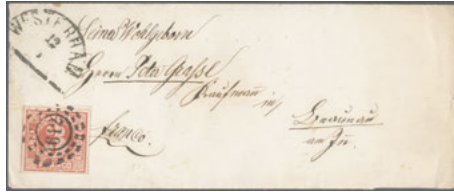 WESTERHAM
12
Seiner Wohlgeborn
Herrn Peter Grassl
Kaufmann in
Braunau
am Inn.
franco.